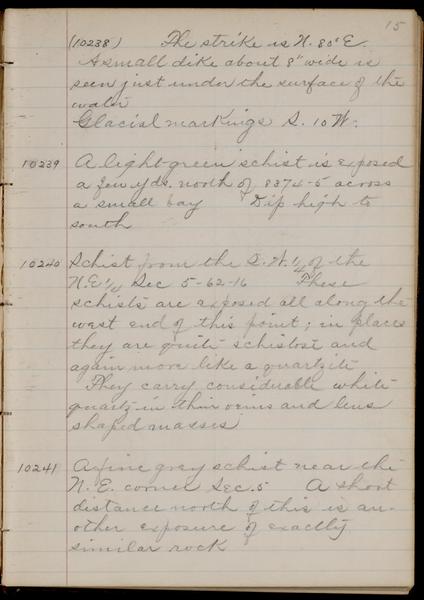 15
(10238) The strike is N. 80° E.
A small dike about 8" wide is
seen just under the surface of the
water
Glacial markings S. 10 W.
10239 A light-green schist is exposed
a few yds. north of 8374-5 across
a small bay Dip high to
south
10240 Schist from the S.W. 1/4 of the
N.E 1/4 Sec 5-62-16 These
schists are exposed all along the
west end of this point; in places
they are quite schistose and
again more like a quartzite
They carry considerable white
quartz in thin veins and lens
shaped masses
10241 A fine grey schist near the
N. E. corner Sec. 5 A short
distance north of this is an-
other exposure of exactly
similar rock